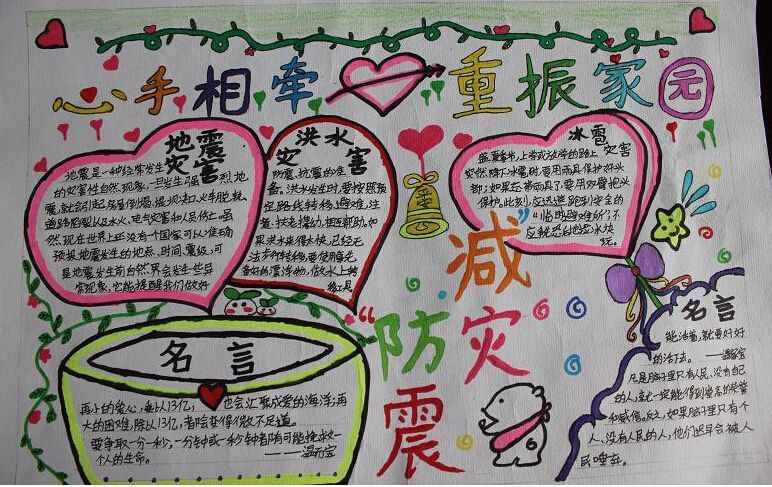 心手相牵 重振家园
地震
灾害
地震是一种经常发生
的灾害性自然现象,一旦发生强烈地
震,就会引起房屋倒塌、堤坝决口、手机乱
道路陷裂以及水火、电气灾害和人员伤亡。虽
然,现在世界上还没有一个国家可以准确
预报地震发生的地点、时间、震级,可
是地震发生前自然界会发生一些异
常现象,它能提醒我们做好
洪水
灾害
防震、抗震的准
备。洪水发生时,要按照预
定路线转移、避难,注
意:扶老携幼、相互帮助。如
果洪水来得太快,已经无
法步行转移,要使用事先
备好的漂浮物,做水上转
移工具
冰雹
灾害
盛夏季节,上学或放学的路上
突然降下冰雹时,要用雨具保护好头
部;如果忘带雨具了,要用双臂抱头
保护。此刻,应迅速跑到安全的
“临时避难所”,不
应耽恐在地拾冰块
玩。
减灾
“防震
名言
再小的爱心,乘以13亿,也会汇聚成爱的海洋;再
大的困难,除以13亿,都会变得微不足道。
要争取一分一秒,一分钟或一秒钟都有可能挽救一
个人的生命。
——温家宝
名言
能活着,就要好好
的活下去。——温家宝
凡是脑子里只有人民、没有自己
的人,就一定能得到崇高的荣誉
和威信。反之,如果脑子里只有个
人、没有人民的人,他们迟早会被人
民唾弃。